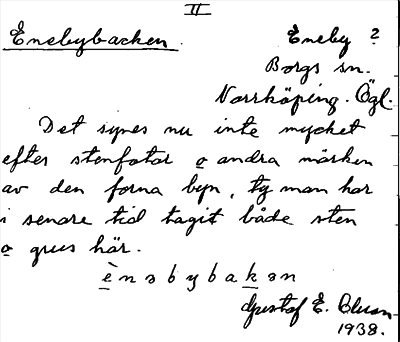 II
Enebybacken. Eneby ?
Borgs sn.
Norrköping. Ögl.
Det synes nu inte mycket
efter stenfotar o andra märken
av den forna byn, ty man har
i senare tid tagit både sten
o grus här.
ènəbybakən
Gustaf E.
1938.